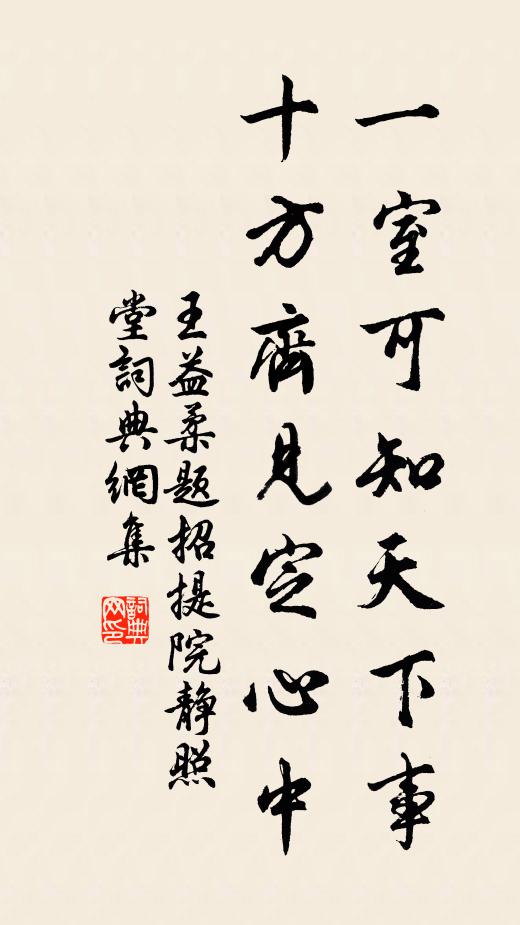 一室可知天下事
十方齊見定心中
王益柔題招提院靜照
堂詞典網集
詞典
网印